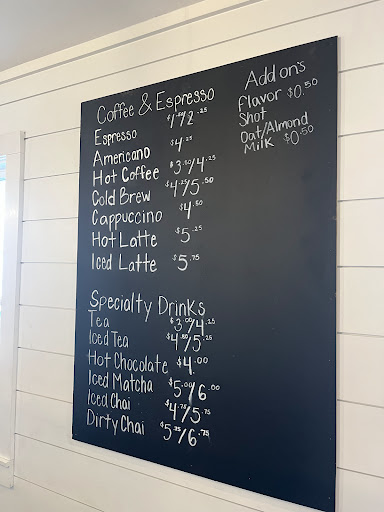 Coffee & Espresso
Espresso $1.25/2.25
Americano $4.25
Hot Coffee $3.50/4.25
Cold Brew $4.25/5.50
Cappuccino $4.50
Hot Latte $5.25
Iced Latte $5.75
Specialty Drinks
Tea $3.00/4.25
Iced Tea $4.50/5.25
Hot Chocolate $4.00
Iced Matcha $5.00/6.00
Iced Chai $4.75/5.75
Dirty Chai $5.75/6.75
Add on's
Flavor $0.50
Shot
Oat/Almond
Milk $0.50